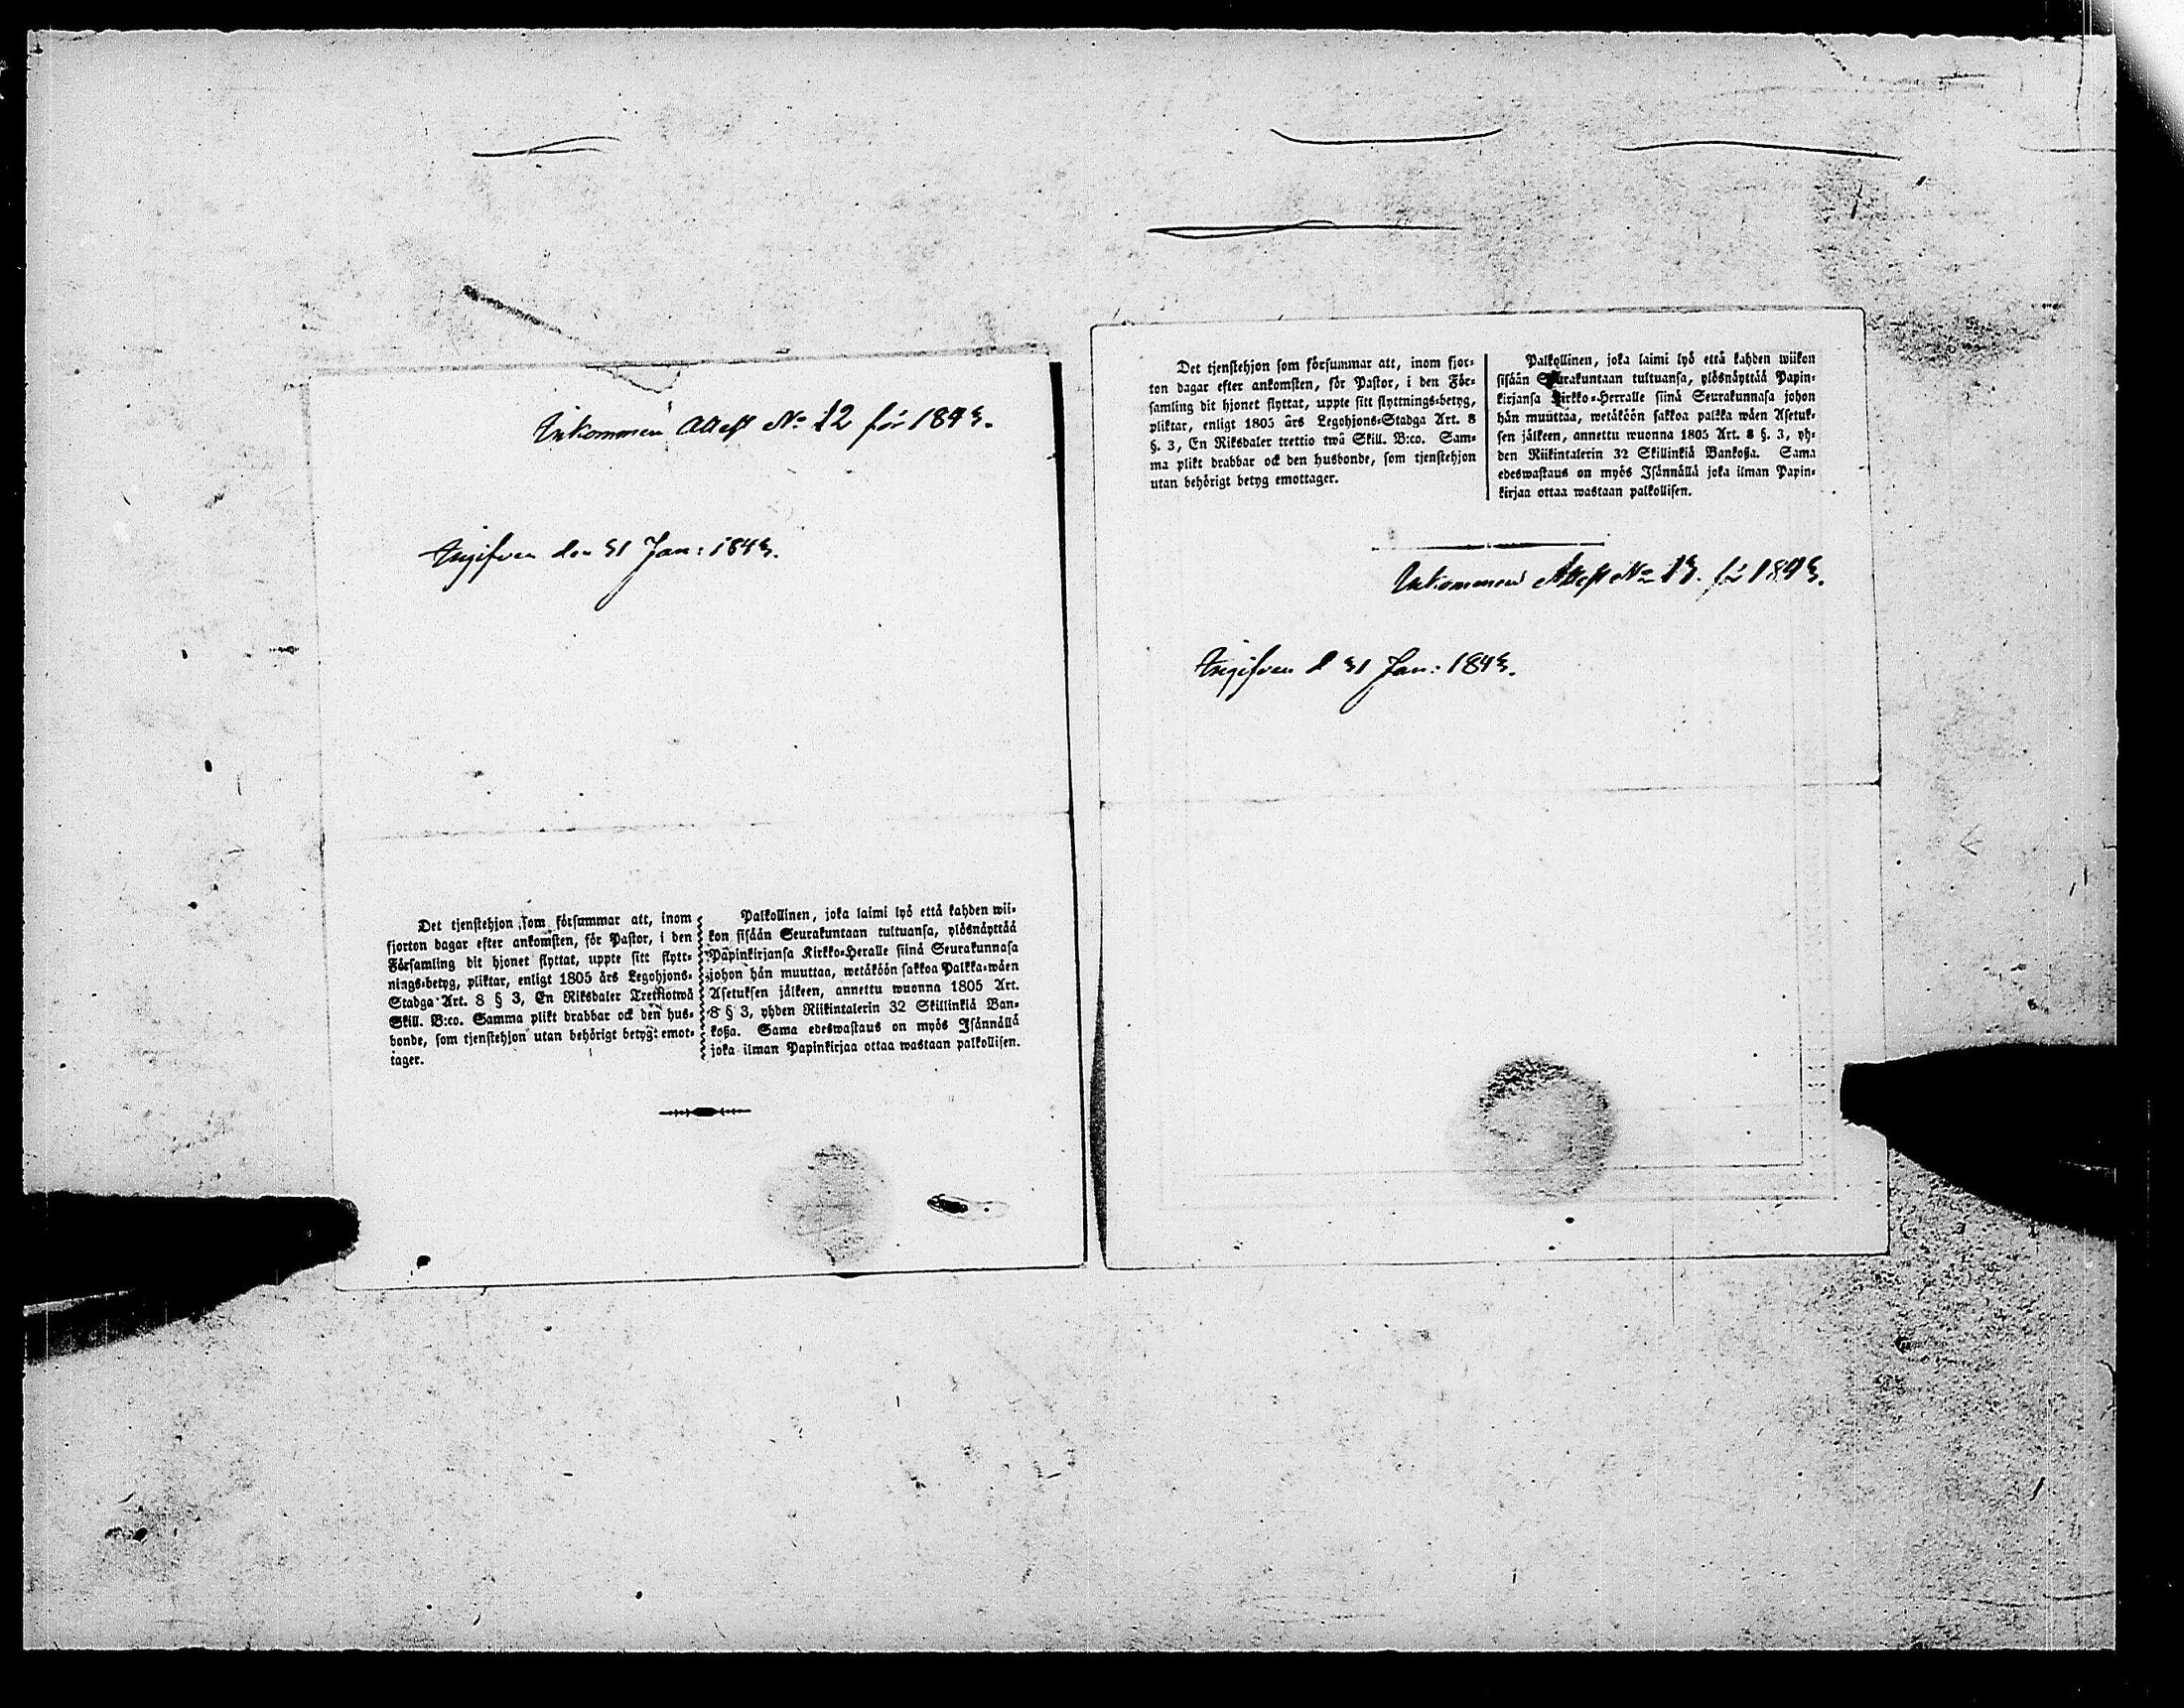 Inkommen Attest No 12 för 1843.
Ingifven den 31 Jan: 1843.
Det tjenstehjon som försummar att, inom
fjorton dagar efter ankomsten, för Pastor, i den
Församling dit hjonet flyttat, uppte sitt flytt-
nings-betyg, pliktar, enligt 1805 års Legohjons-
Stadga Art. 8 § 3, En Riksdaler Trettiotwå
Skill. B:co. Samma plikt drabbar ock den hus-
bonde, som tjenstehjon utan behörigt betyg emot-
tager.
Palkollinen, joka laimi lyö että kahden wii-
kon sisään Seurakuntaan tultuansa, ylösnäyttää
Papinkirjansa Kirkko-Heralle siinä Seurakunnasa
johon hän muuttaa, wetäköön sakkoa Palkka-wäen
Asetuksen jälkeen, annettu wuonna 1805 Art.
8 § 3, yhden Riikintalerin 32 Skillinkiä Ban-
koßa. Sama edeswastaus on myös Isännällä
joka ilman Papinkirjaa ottaa wastaan palkollisen.
Det tjenstehjon som försummar att, inom fjor-
ton dagar efter ankomsten, för Pastor, i den För-
samling dit hjonet flyttat, uppte sitt flyttnings-betyg,
pliktar, enligt 1805 års Legohjons-Stadga Art. 8
§. 3, En Riksdaler trettio twå Skill. B:co. Sam-
ma plikt drabbar ock den husbonde, som tjenstehjon
utan behörigt betyg emottager.
Palkollinen, joka laimi lyö että kahden wiikon
sisään Seurakuntaan tultuansa, ylösnäyttää Papin-
kirjansa Kirkko-Herralle siinä Seurakunnasa johon
hän muuttaa, wetäköön sakkoa palkka wäen Asetuk-
sen jälkeen, annettu wuonna 1805 Art. 8 §. 3, yh-
den Riikintalerin 32 Skillinkiä Bankoßa. Sama
edeswastaus on myös Isännällä joka ilman Papin-
kirjaa ottaa wastaan palkollisen.
Inkommen Attest No 13. för 1843.
Ingifven d 31 Jan: 1843.